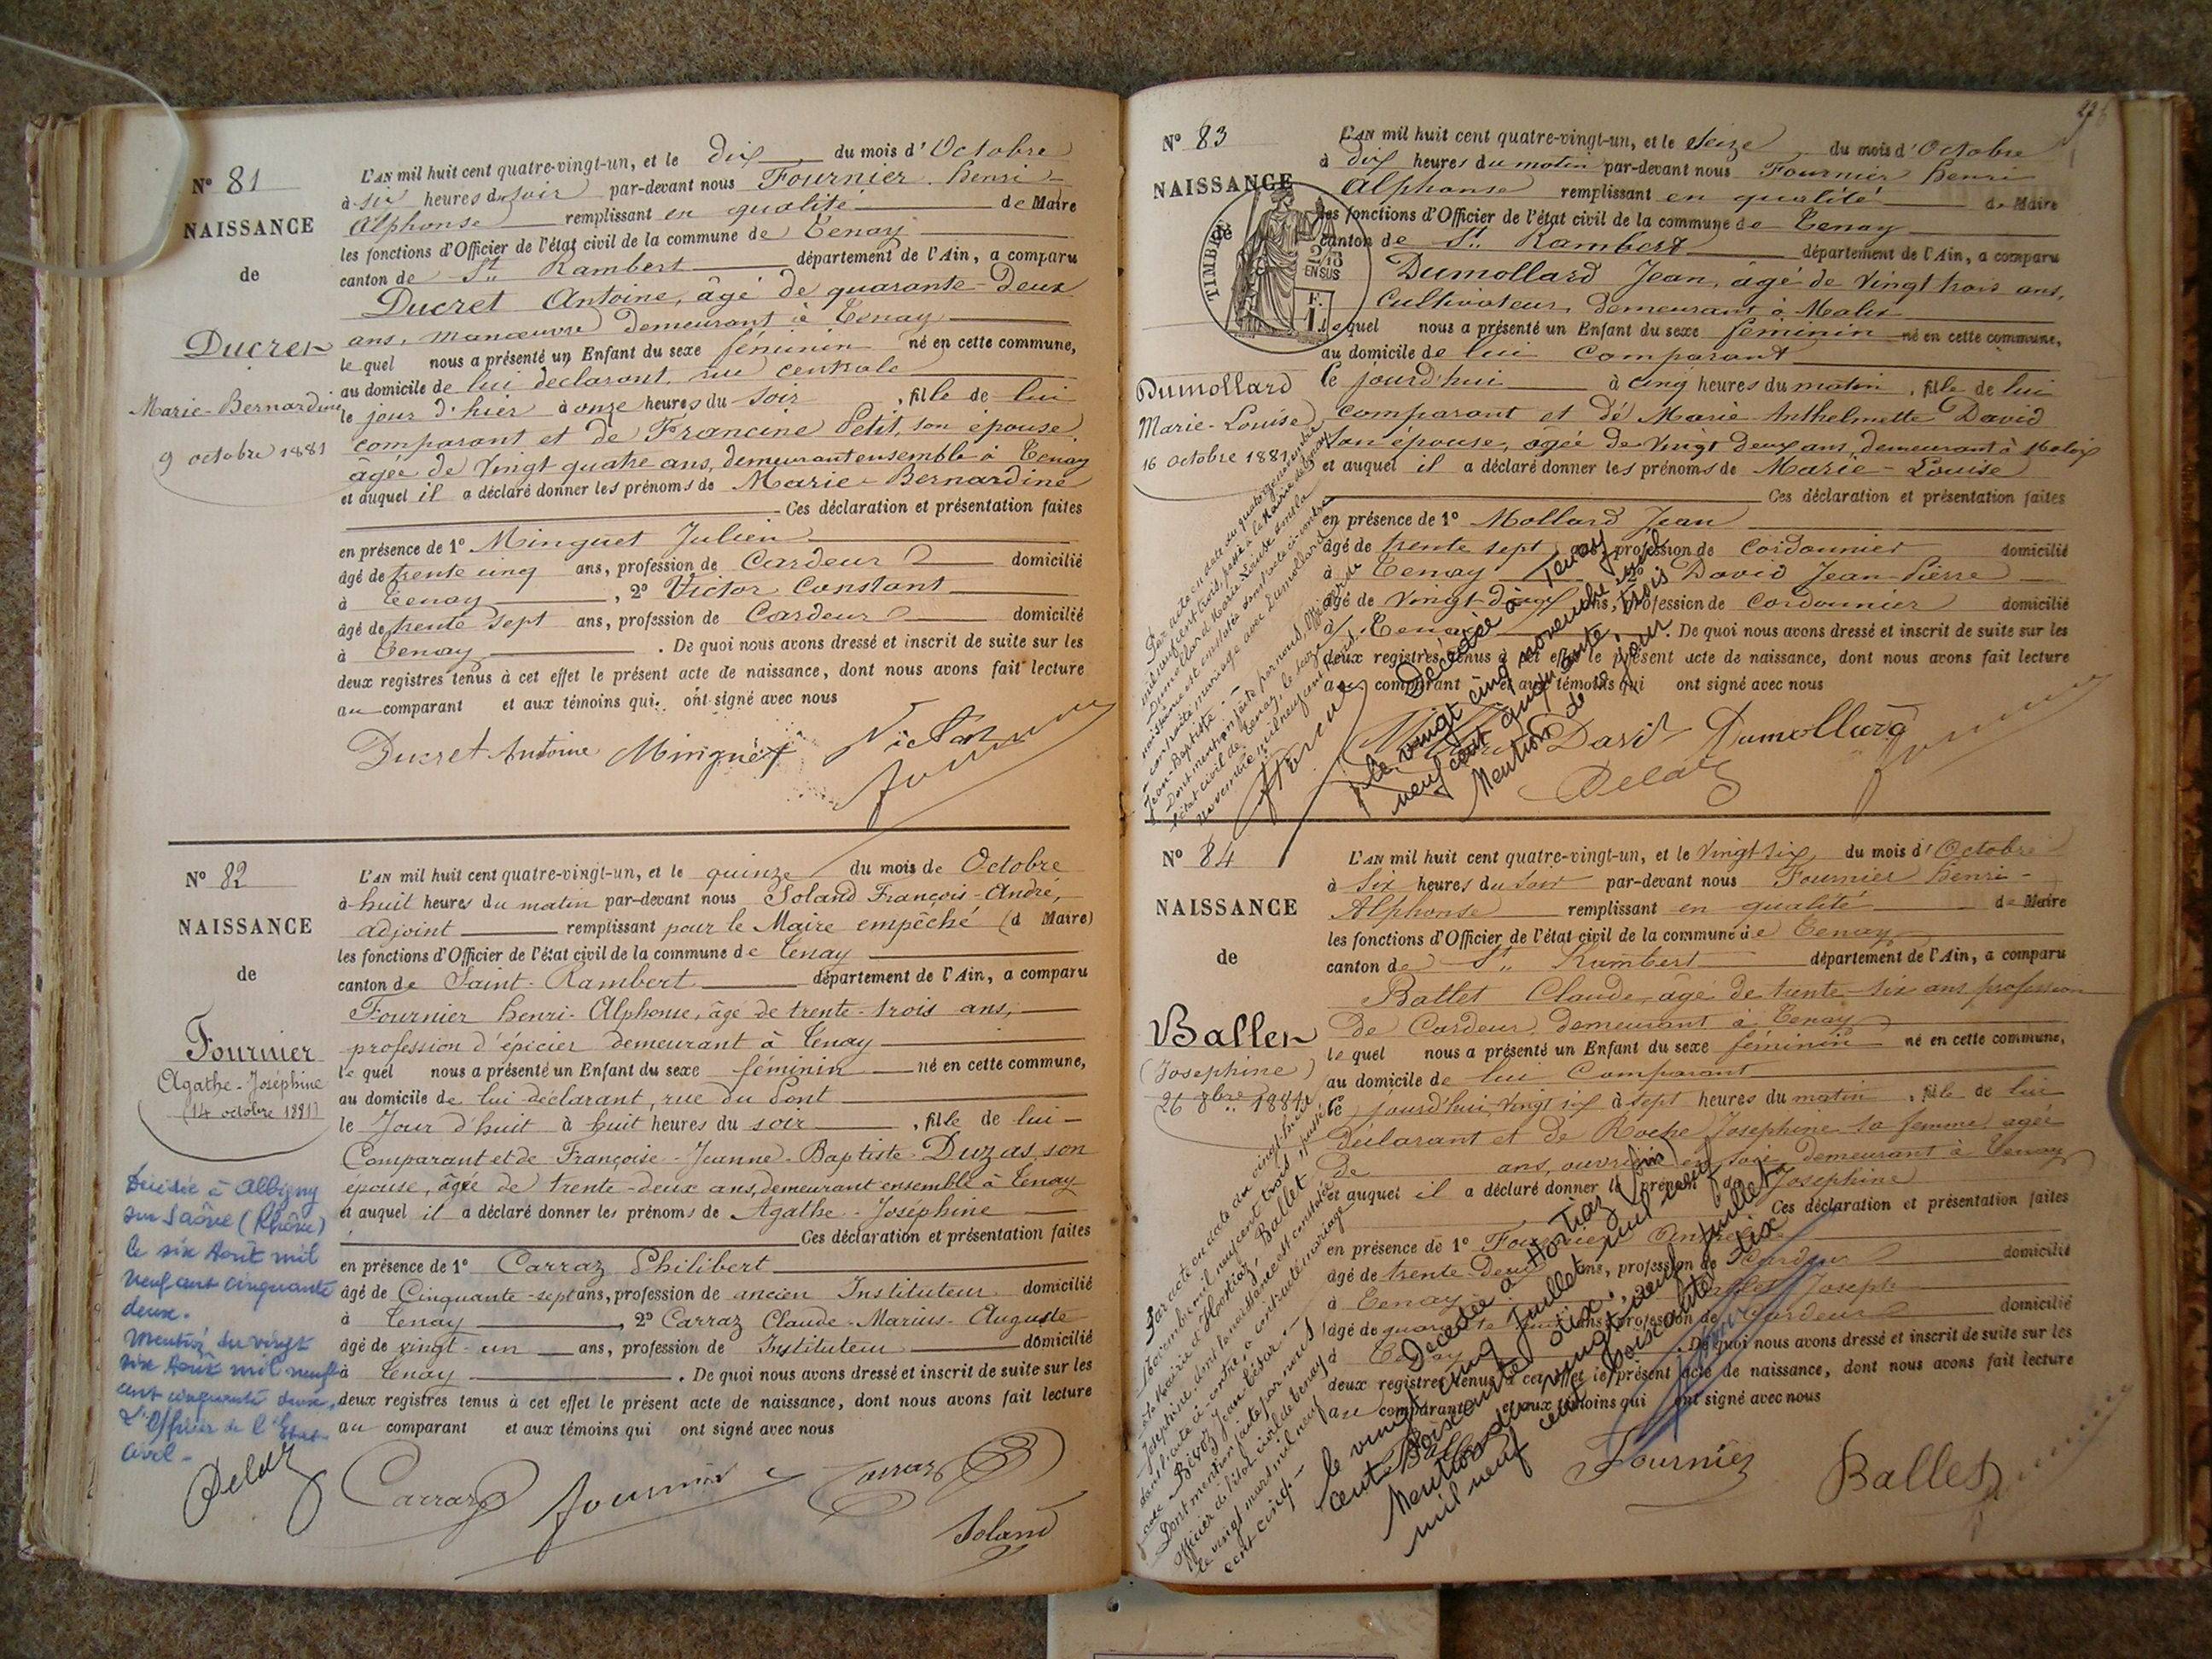 Nº 81
NAISSANCE
de
Ducret
Marie-Bernardine
9 octobre 1881
L'AN mil huit cent quatre-vingt-un, et le dix du mois d'Octobre
à six heures du soir par-devant nous Fournier Henri-
Alphonse remplissant en qualité de Maire
les fonctions d'Officier de l'état civil de la commune de Tenay
canton de St Rambert département de l'Ain, a comparu
Ducret Antoine, âgé de quarante-deux
ans, manœuvre demeurant à Tenay
lequel nous a présenté un Enfant du sexe féminin né en cette commune,
au domicile de lui déclarant, rue centrale
le jour d'hier à onze heures du soir, fille de lui
comparant et de Francine Petit, son épouse,
âgée de vingt quatre ans, demeurant ensemble à Tenay
et auquel il a déclaré donner les prénoms de Marie-Bernardine
Ces déclaration et présentation faites
en présence de 1º Minguet Julien
âgé de trente cinq ans, profession de Cardeur domicilié
à Tenay, 2º Victor Constant
âgé de trente sept ans, profession de Cardeur domicilié
à Tenay. De quoi nous avons dressé et inscrit de suite sur les
deux registres tenus à cet effet le présent acte de naissance, dont nous avons fait lecture
au comparant et aux témoins qui ont signé avec nous
Ducret Antoine Minguet Victor
Nº 82
NAISSANCE
de
Fournier
Agathe-Joséphine
(14 octobre 1881)
L'AN mil huit cent quatre-vingt-un, et le quinze du mois de Octobre
à huit heures du matin par-devant nous Soland François-André,
adjoint remplissant pour le Maire empêché (d Maire)
les fonctions d'Officier de l'état civil de la commune de Tenay
canton de Saint-Rambert département de l'Ain, a comparu
Fournier Henri-Alphonse, âgé de trente-trois ans,
profession d'épicier demeurant à Tenay
lequel nous a présenté un Enfant du sexe féminin né en cette commune,
au domicile de lui déclarant, rue du Pont
le Jour d'huit à huit heures du soir, fille de lui-
Comparant et de Françoise-Jeanne-Baptiste Duzas, son
épouse, âgée de trente-deux ans, demeurant ensemble à Tenay
et auquel il a déclaré donner les prénoms de Agathe-Joséphine
Ces déclaration et présentation faites
en présence de 1º Carraz Philibert
âgé de Cinquante-sept ans, profession de ancien Instituteur domicilié
à Tenay, 2º Carraz Claude-Marius-Auguste
âgé de vingt-un ans, profession de Instituteur domicilié
à Tenay. De quoi nous avons dressé et inscrit de suite sur les
deux registres tenus à cet effet le présent acte de naissance, dont nous avons fait lecture
au comparant et aux témoins qui ont signé avec nous
Décédée à Albigny
sur Saône (Rhône)
le six Août mil
neuf cent cinquante
deux.
Mention du vingt
six Août mil neuf
cent cinquante deux.
L'Officier de l'Etat-
civil-
Delaz
Carraz Fournier Carraz
Soland
Nº 83
NAISSANCE
de
TIMBRE
2/10
EN SUS
Dumollard
Marie-Louise
16 octobre 1881
L'AN mil huit cent quatre-vingt-un, et le Seize du mois d'Octobre
à dix heures du matin par-devant nous Fournier Henri
Alphonse remplissant en qualité de Maire
les fonctions d'Officier de l'état civil de la commune de Tenay
canton de St Rambert département de l'Ain, a comparu
Dumollard Jean, âgé de Vingt trois ans,
Cultivateur, demeurant à Malix
lequel nous a présenté un Enfant du sexe féminin né en cette commune,
au domicile de lui Comparant
Ce jourd'hui à cinq heures du matin, fille de lui
comparant et de Marie-Anthelmette David
son épouse, âgée de Vingt deux ans, demeurant à Malix
et auquel il a déclaré donner les prénoms de Marie-Louise
Ces déclaration et présentation faites
en présence de 1º Mollard Jean
âgé de trente sept ans, profession de Cordonnier domicilié
à Tenay 2º David Jean-Pierre
âgé de Vingt-deux ans, profession de Cordonnier domicilié
à Tenay. De quoi nous avons dressé et inscrit de suite sur les
deux registres tenus à cet effet le présent acte de naissance, dont nous avons fait lecture
au comparant et aux témoins qui ont signé avec nous
Par acte en date du quatorze novembre
mil neuf cent trois, passé à la Mairie de Tenay
Dumollard Marie Louise dont la
naissance est constatée dans l'acte ci-contre
contracté mariage avec Dumollard
Jean-Baptiste.
Dont mention faite par nous Officier de
l'état-civil de Tenay, le seize
novembre mil neuf cent trois.
Décédée à Tenay
le vingt cinq novembre mil
neuf cent cinquante trois
Mention de ce jour
David Dumollard
Delaz
Nº 84
NAISSANCE
de
Ballet
(Josephine)
26 8bre 1881
L'AN mil huit cent quatre-vingt-un, et le Vingt six du mois d'Octobre
à Six heures du Soir par-devant nous Fournier Henri-
Alphonse remplissant en qualité de Maire
les fonctions d'Officier de l'état civil de la commune de Tenay
canton de St Rambert département de l'Ain, a comparu
Ballet Claude, âgé de trente-six ans profession
de Cardeur, demeurant à Tenay
lequel nous a présenté un Enfant du sexe féminin né en cette commune,
au domicile de lui Comparant
Ce jourd'hui, Vingt six à sept heures du matin, fille de lui
déclarant et de Roche Josephine sa femme, agée
de ans, ouvrière en soie, demeurant à Tenay
et auquel il a déclaré donner le prénom de Josephine
Ces déclaration et présentation faites
en présence de 1º Fournier
âgé de trente-deux ans, profession de Cardeur domicilié
à Tenay Joseph
âgé de ans, profession de Cardeur domicilié
à Tenay. De quoi nous avons dressé et inscrit de suite sur les
deux registres tenus à cet effet le présent acte de naissance, dont nous avons fait lecture
au comparant et aux témoins qui ont signé avec nous
Par acte en date du vingt-huit
Novembre mil neuf cent trois, passé
à la Mairie d'Hostiaz, Ballet
Josephine, dont la naissance est constatée
dans l'acte ci-contre, a contracté mariage
avec
Dont mention faite par nous
Officier de l'état civil de Tenay
le vingt mars mil neuf
cent cinq.-
Décédée à Hostiaz (Ain)
le vingt cinq Juillet mil neuf
cent soixante dix.
Mention du vingt neuf Juillet
mil neuf cent soixante dix
Fournier Ballet